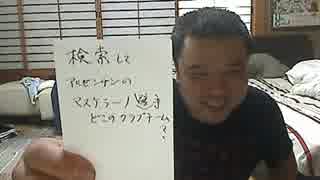 検索して
アルゼンチンの
マスケラーノ選手
どこのクラブチーム
?